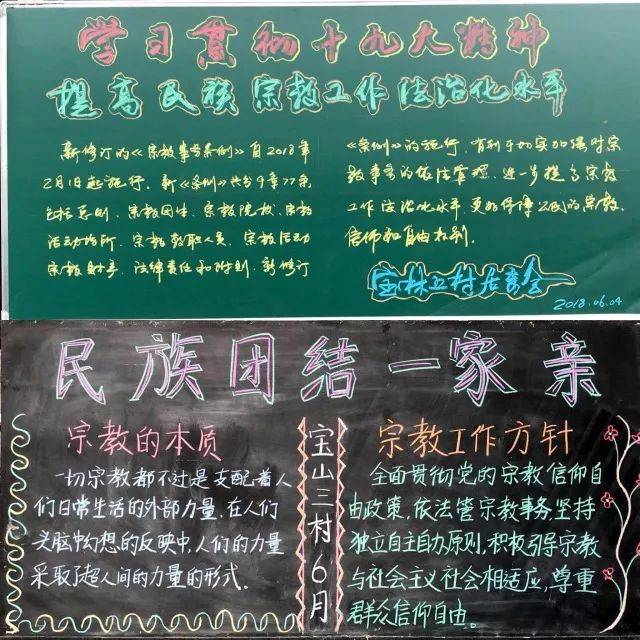 学习贯彻十九大精神
提高民族宗教工作法治化水平
新修订的《宗教事务条例》自2018年
2月1日起施行。新《条例》共分9章77条,
包括总则、宗教团体、宗教院校、宗教
活动场所、宗教教职人员、宗教活动
宗教财产、法律责任和附则。新修订
《条例》的施行,有利于加实加强对宗
教事务的依法管理,进一步提高宗教
工作法治化水平,更好保障公民的宗教
信仰和自由权利。
宝林五村居委会
2018.06.04
民族团结一家亲
宗教的本质
一切宗教都不过是支配着人
们日常生活的外部力量,在人们
头脑中幻想的反映中,人们的力量
采取了超人间的力量的形式.
宝山三村6月
宗教工作方针
全面贯彻党的宗教信仰自
由政策,依法管宗教事务,坚持
独立自主自办原则,积极引导宗教
与社会主义社会相适应,尊重
群众信仰自由.